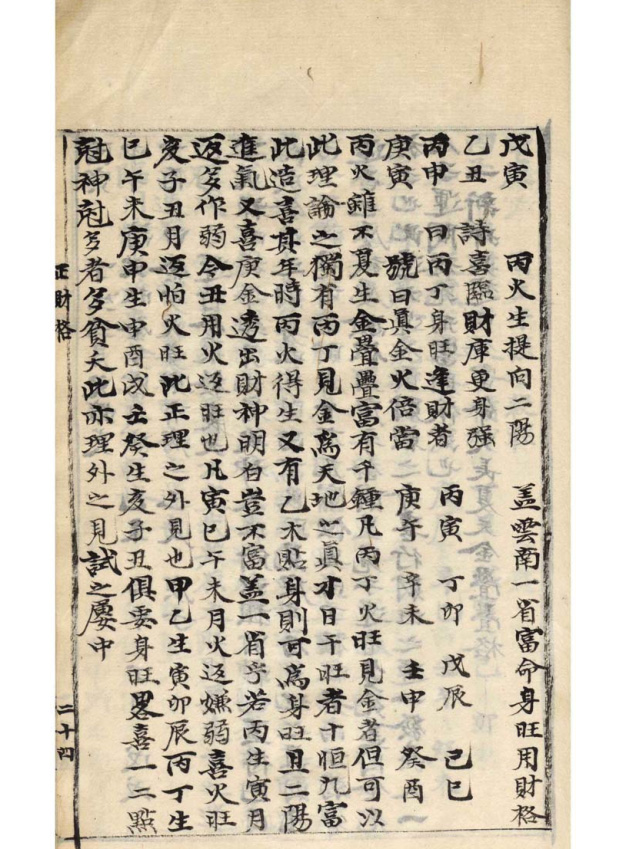 戊寅　丙火生提向二陽　蓋雲南一省富命身旺用財格
乙丑　詩喜臨財庫更身强
丙申　曰丙丁身旺逢財者　丙寅　丁卯　戊辰　己巳
庚寅　號曰真金火倍當　庚午　辛未　壬申　癸酉
丙火雖不夏生金疊疊富有千鍾凡丙丁火旺見金者但可以
此理論之獨有丙丁見金為天地之真才日干旺者十恒九富
此造喜其年時丙火得生又有乙木貼身則可為身旺且二陽
進氣又喜庚金透出財神明白豈不富蓋一省乎若丙生寅月
返多作弱今丑用火返旺也凡寅巳午未月火返嫌弱喜火旺
亥子丑月返怕火旺此正理之外見也甲乙生寅卯辰丙丁生
巳午未庚申生申酉戌壬癸生亥子丑俱要身旺畧喜一二點
尅神尅多者多貧夭此亦理外之見試之屢中
正財格
二十四